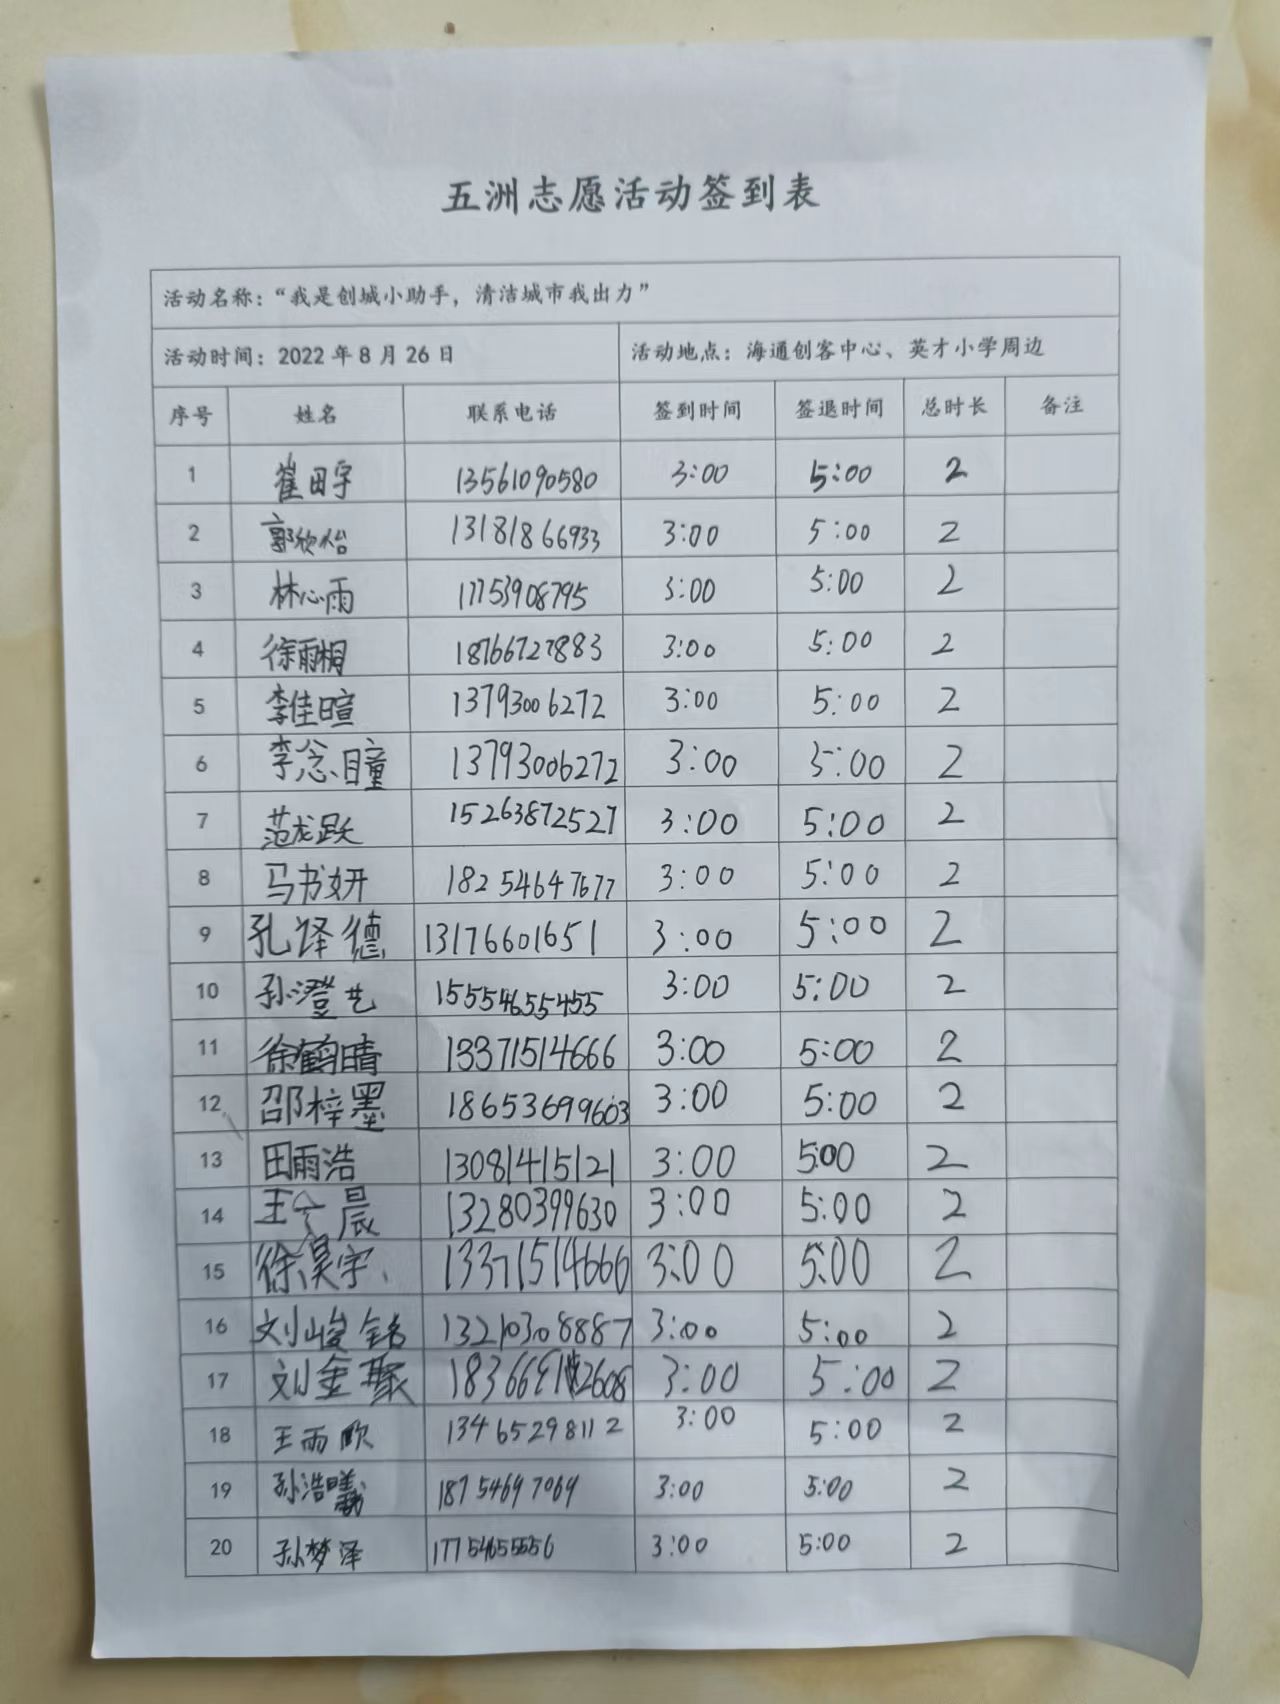 五洲志愿活动签到表
活动名称：“我是创城小助手，清洁城市我出力”
活动时间：2022年8月26日 活动地点：海通创客中心、英才小学周边
序号 姓名 联系电话 签到时间 签退时间 总时长 备注
1 崔田宇 13561090580 3:00 5:00 2
2 郭欣怡 13181866933 3:00 5:00 2
3 林心雨 17753908795 3:00 5:00 2
4 徐雨桐 18766727883 3:00 5:00 2
5 李佳暄 13793006272 3:00 5:00 2
6 李念瞳 13793006272 3:00 5:00 2
7 范龙跃 15263872527 3:00 5:00 2
8 马书妍 18254647677 3:00 5:00 2
9 孔译德 13176601651 3:00 5:00 2
10 孙澄艺 15554655455 3:00 5:00 2
11 徐鹤晴 13371514666 3:00 5:00 2
12 邵梓墨 18653699603 3:00 5:00 2
13 田雨浩 13081415121 3:00 5:00 2
14 13280399630 3:00 5:00 2
15 徐昊宇 13371514666 3:00 5:00 2
16 刘峻铭 13210308887 3:00 5:00 2
17 刘金聚 3:00 5:00 2
18 王雨欧 13465298112 3:00 5:00 2
19 孙浩曦 18754697069 3:00 5:00 2
20 孙梦泽 17754655556 3:00 5:00 2